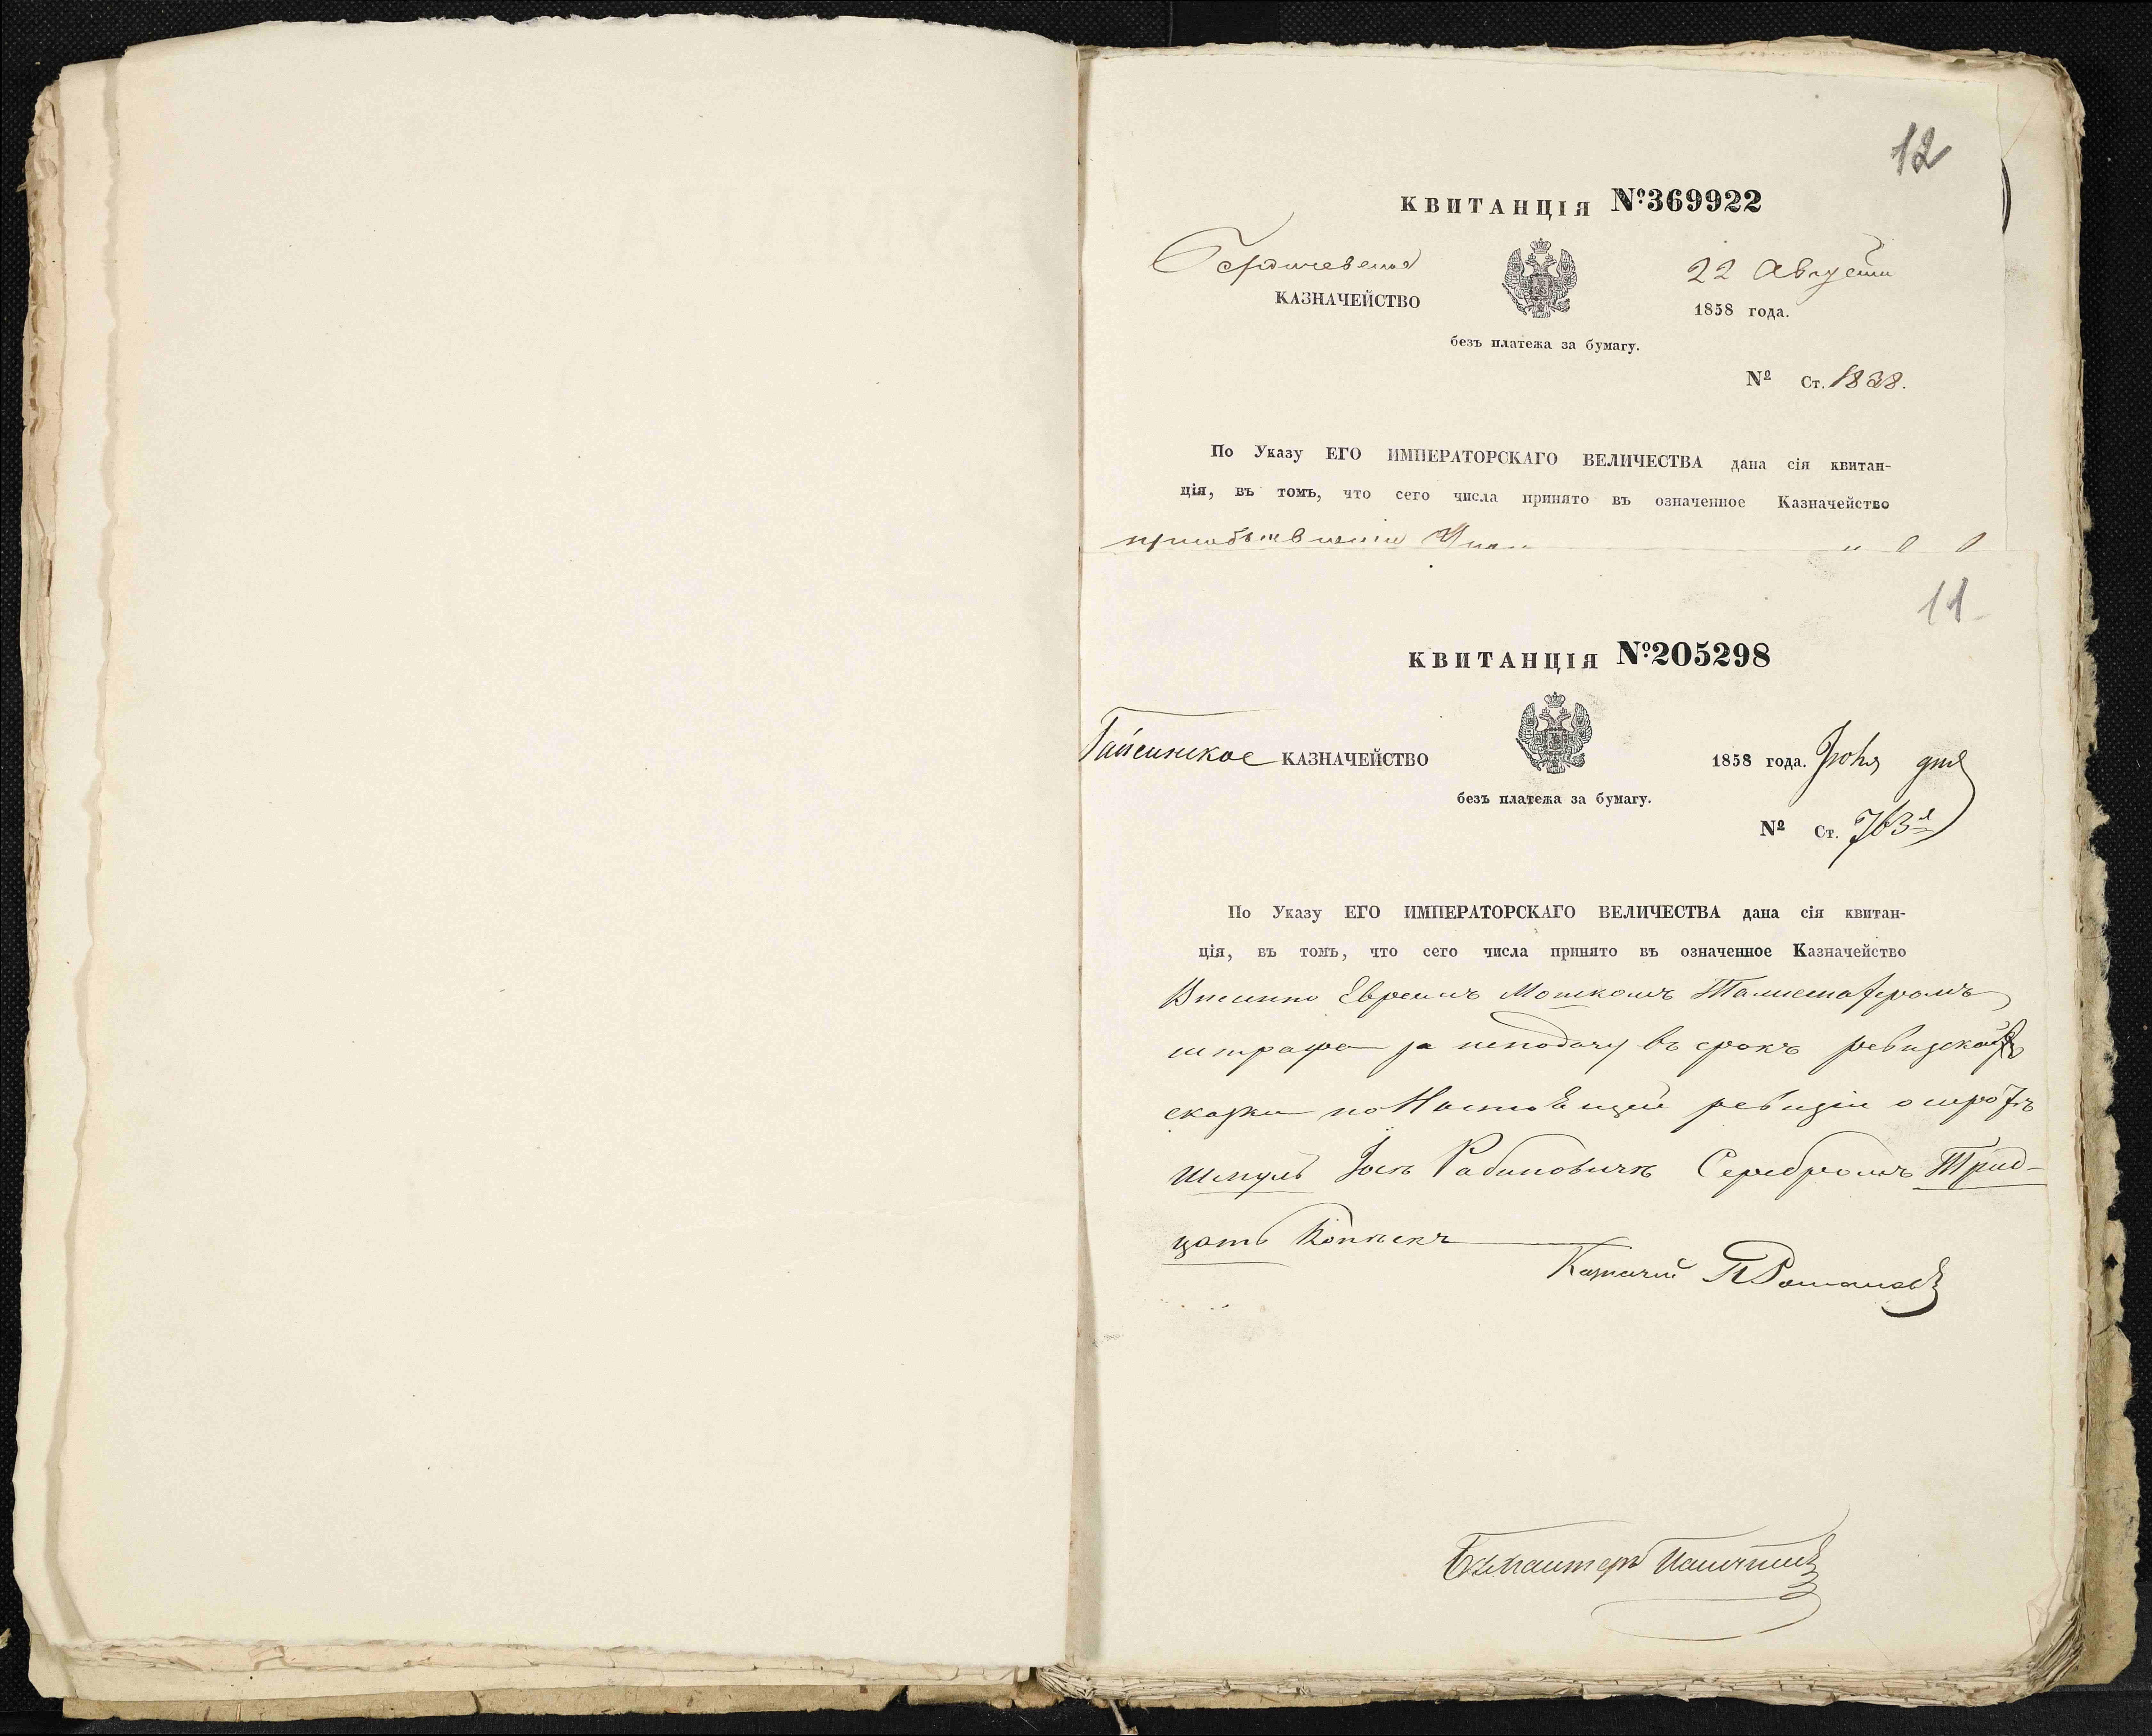 12
КВИТАНЦІЯ №369922
22 Августа
КАЗНАЧЕЙСТВО
1858 года.
безъ платежа за бумагу.
№ Ст. 1838.
По Указу ЕГО ИМПЕРАТОРСКАГО ВЕЛИЧЕСТВА дана сія квитан-
ція, въ томъ, что сего числа принято въ означенное Казначейство
11
КВИТАНЦІЯ №205298
Гайсинское КАЗНАЧЕЙСТВО
1858 года. дня
безъ платежа за бумагу.
№ Ст. 763
По Указу ЕГО ИМПЕРАТОРСКАГО ВЕЛИЧЕСТВА дана сія квитан-
ція, въ томъ, что сего числа принято въ означенное Казначейство
Евреемъ Мошкомъ
штрафа за неподачу въ срокъ ревизской
сказки по Настоящей ревизіи о
Шмуль Рабиновичъ Серебромъ Трид-
цать Копѣекъ
Казначей П Романовъ
Бухгалтеръ